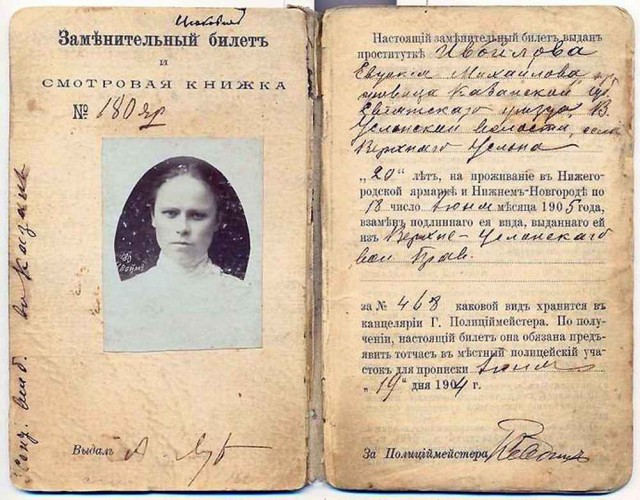 Замѣнительный билетъ
и
СМОТРОВАЯ КНИЖКА
№ 180 яр
Выдалъ
Настоящій замѣнительный билетъ выданъ
проституткѣ Ивойлова
Евдокія Михайлова
Казанской губ
уѣзда, В.
Услонской волости, села
Верхняго Услона
„20" лѣтъ, на проживаніе въ Нижего-
родской ярмаркѣ и Нижнемъ-Новгородѣ по
18 число Іюня мѣсяца 1905 года,
взамѣнъ подлиннаго ея вида, выданнаго ей
изъ Верхне-Услонскаго
вол Прав.
за № 468 каковой видъ хранится въ
канцеляріи Г. Полиціймейстера. По полу-
ченіи, настоящій билетъ она обязана предъ-
явить тотчасъ въ мѣстный полицейскій уча-
стокъ для прописки Іюня
„19" дня 1904 г.
За Полиціймейстера